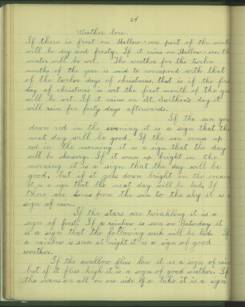 24
Weather lore
If there is frost on Hallow-een part of the winter
will be dry and frosty. If it rains on Hallow-een the
winter will be wet. The weather for the twelve
months of the year is said to correspond with that
of the twelve days of christmas, that is if the first
day of christmas is wet the first month of the year
will be wet. If it rains on St. Swithin's day it
will rain for forty days afterwards.
If the sun goes
down red in the evening it is a sign that the
next day will be good. If the sun comes up
red in the morning it is a sign that the day
will be showery. If it comes up bright in the
morning it is a sign that the day will be
good, but if it goes down bright in the evening
it is a sign that the next day will be bad. If
there are lines from the sun to the sky it is a
sign of rain.
If the stars are twinkling it is a
sign of frost. If a rainbow is seen on Saturday it
is a sign that the following week will be bad. If
a rainbow is seen at night it is a sign of good
weather.
If the swallow flies low it is a sign of rain
but if it flies high it is a sign of good weather. If
the swans are all on one side of a lake it is a sign